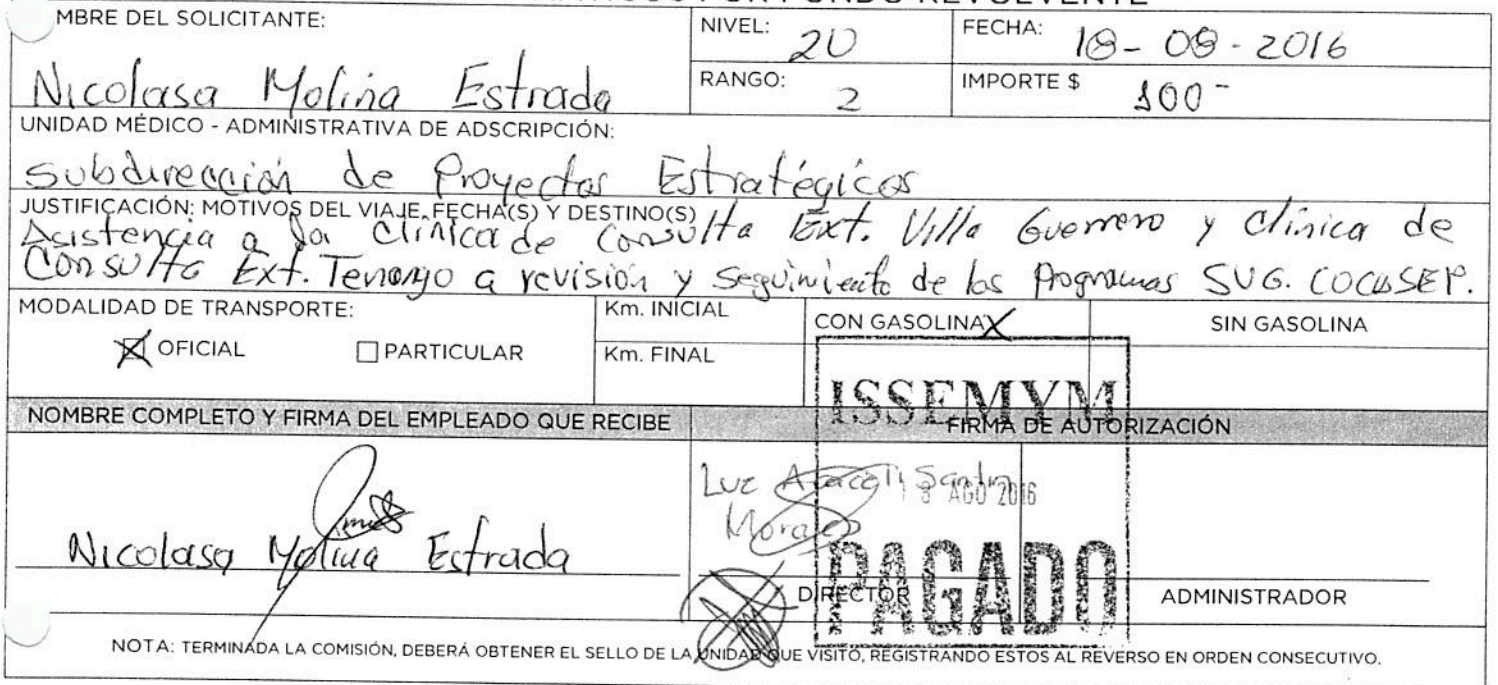 POR FONDO REVOLVENTE
MBRE DEL SOLICITANTE:
Nicolasa Molina Estrada
NIVEL: 20
FECHA: 18-08-2016
RANGO: 2
IMPORTE $ 100-
UNIDAD MÉDICO - ADMINISTRATIVA DE ADSCRIPCIÓN:
Subdirección de Proyectos Estratégicos
JUSTIFICACIÓN: MOTIVOS DEL VIAJE, FECHA(S) Y DESTINO(S)
Asistencia a la Clínica de Consulta Ext. Villa Guerrero y Clínica de
Consulta Ext. Tenango a revisión y Seguimiento de los Programas SUG. COCASEP.
MODALIDAD DE TRANSPORTE:
OFICIAL
PARTICULAR
Km. INICIAL
Km. FINAL
CON GASOLINA X
SIN GASOLINA
ISSEMYM
NOMBRE COMPLETO Y FIRMA DEL EMPLEADO QUE RECIBE
FIRMA DE AUTORIZACIÓN
Luz Araceli
18 AGO 2016
Morales
Nicolasa Molina Estrada
PAGADO
DIRECTOR
ADMINISTRADOR
NOTA: TERMINADA LA COMISIÓN, DEBERÁ OBTENER EL SELLO DE LA UNIDAD QUE VISITÓ, REGISTRANDO ESTOS AL REVERSO EN ORDEN CONSECUTIVO.